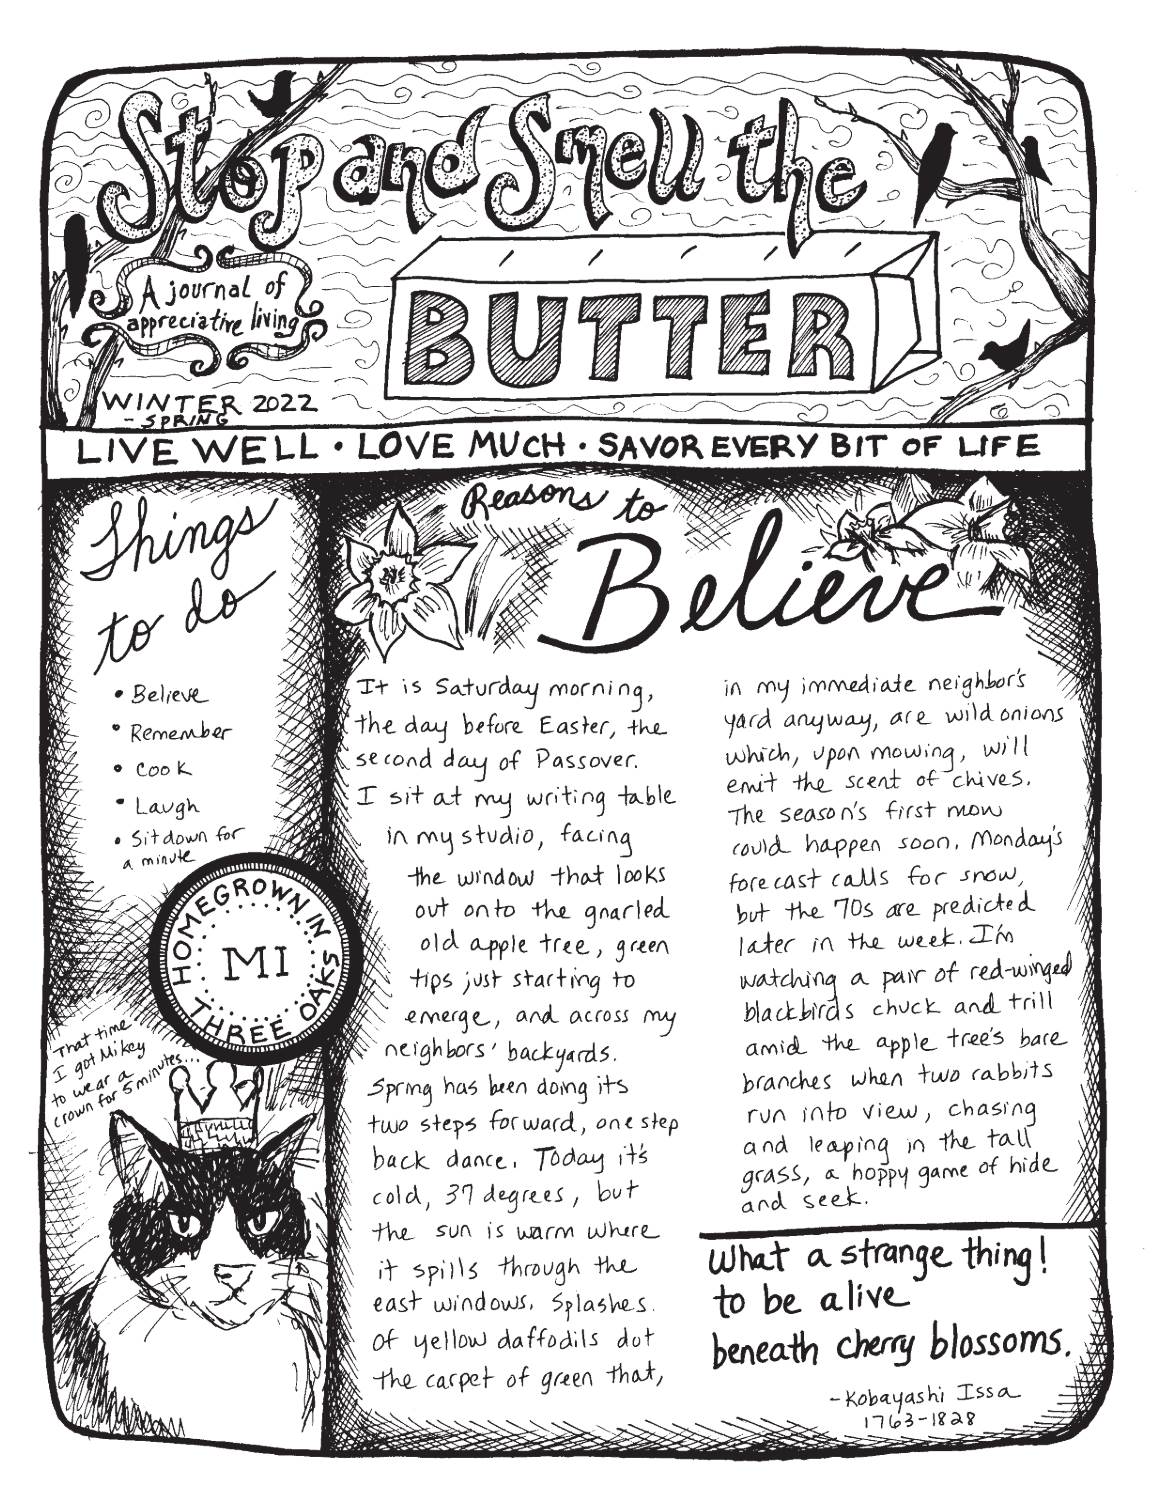 Stop and Smell the
BUTTER
A journal of
appreciative living
WINTER 2022
- SPRING
LIVE WELL • LOVE MUCH • SAVOR EVERY BIT OF LIFE
Things
to do
• Believe
• Remember
• Cook
• Laugh
• Sit down for
a minute
HOMEGROWN IN
MI
THREE OAKS
That time
I got Mikey
to wear a
crown for 5 minutes...
Reasons to
Believe
It is Saturday morning,
the day before Easter, the
second day of Passover.
I sit at my writing table
in my studio, facing
the window that looks
out onto the gnarled
old apple tree, green
tips just starting to
emerge, and across my
neighbors' backyards.
Spring has been doing its
two steps forward, one step
back dance. Today it's
cold, 37 degrees, but
the sun is warm where
it spills through the
east windows. Splashes
of yellow daffodils dot
the carpet of green that,
in my immediate neighbor's
yard anyway, are wild onions
which, upon mowing, will
emit the scent of chives.
The season's first mow
could happen soon. Monday's
forecast calls for snow,
but the 70s are predicted
later in the week. I'm
watching a pair of red-winged
blackbirds chuck and trill
amid the apple tree's bare
branches when two rabbits
run into view, chasing
and leaping in the tall
grass, a hoppy game of hide
and seek.
What a strange thing!
to be alive
beneath cherry blossoms.
-Kobayashi Issa
1763-1828